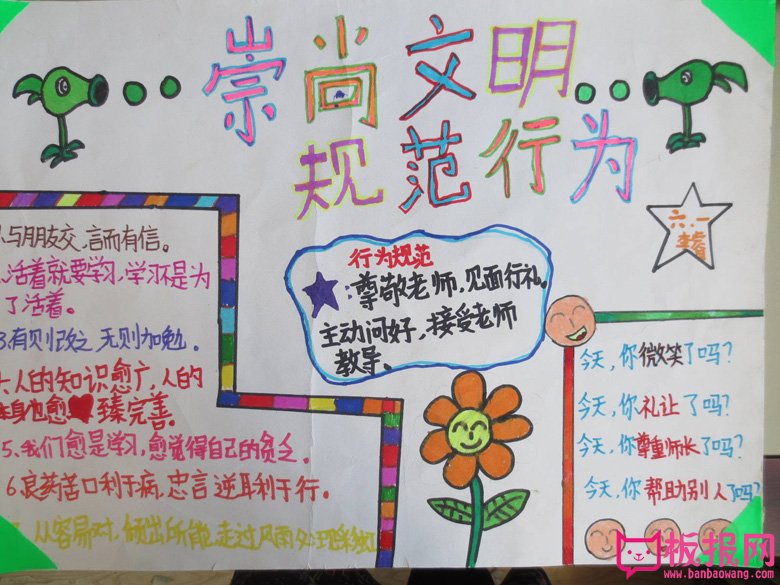 崇尚文明
规范行为
与朋友交，言而有信。
活着就要学习，学习不是为
了活着。
3.有则改之，无则加勉。
人的知识愈广，人的
本身也愈臻完善。
5、我们愈是学习，愈觉得自己的贫乏。
6.良药苦口利于病，忠言逆耳利于行。
从容易对，倾出所能，走过风雨
行为规范
：尊敬老师，见面行礼。
主动问好，接受老师
教导。
六.一
今天，你微笑了吗？
今天，你礼让了吗？
今天，你尊重师长了吗？
今天，你帮助别人了吗？
板报网
www.banbaowang.com